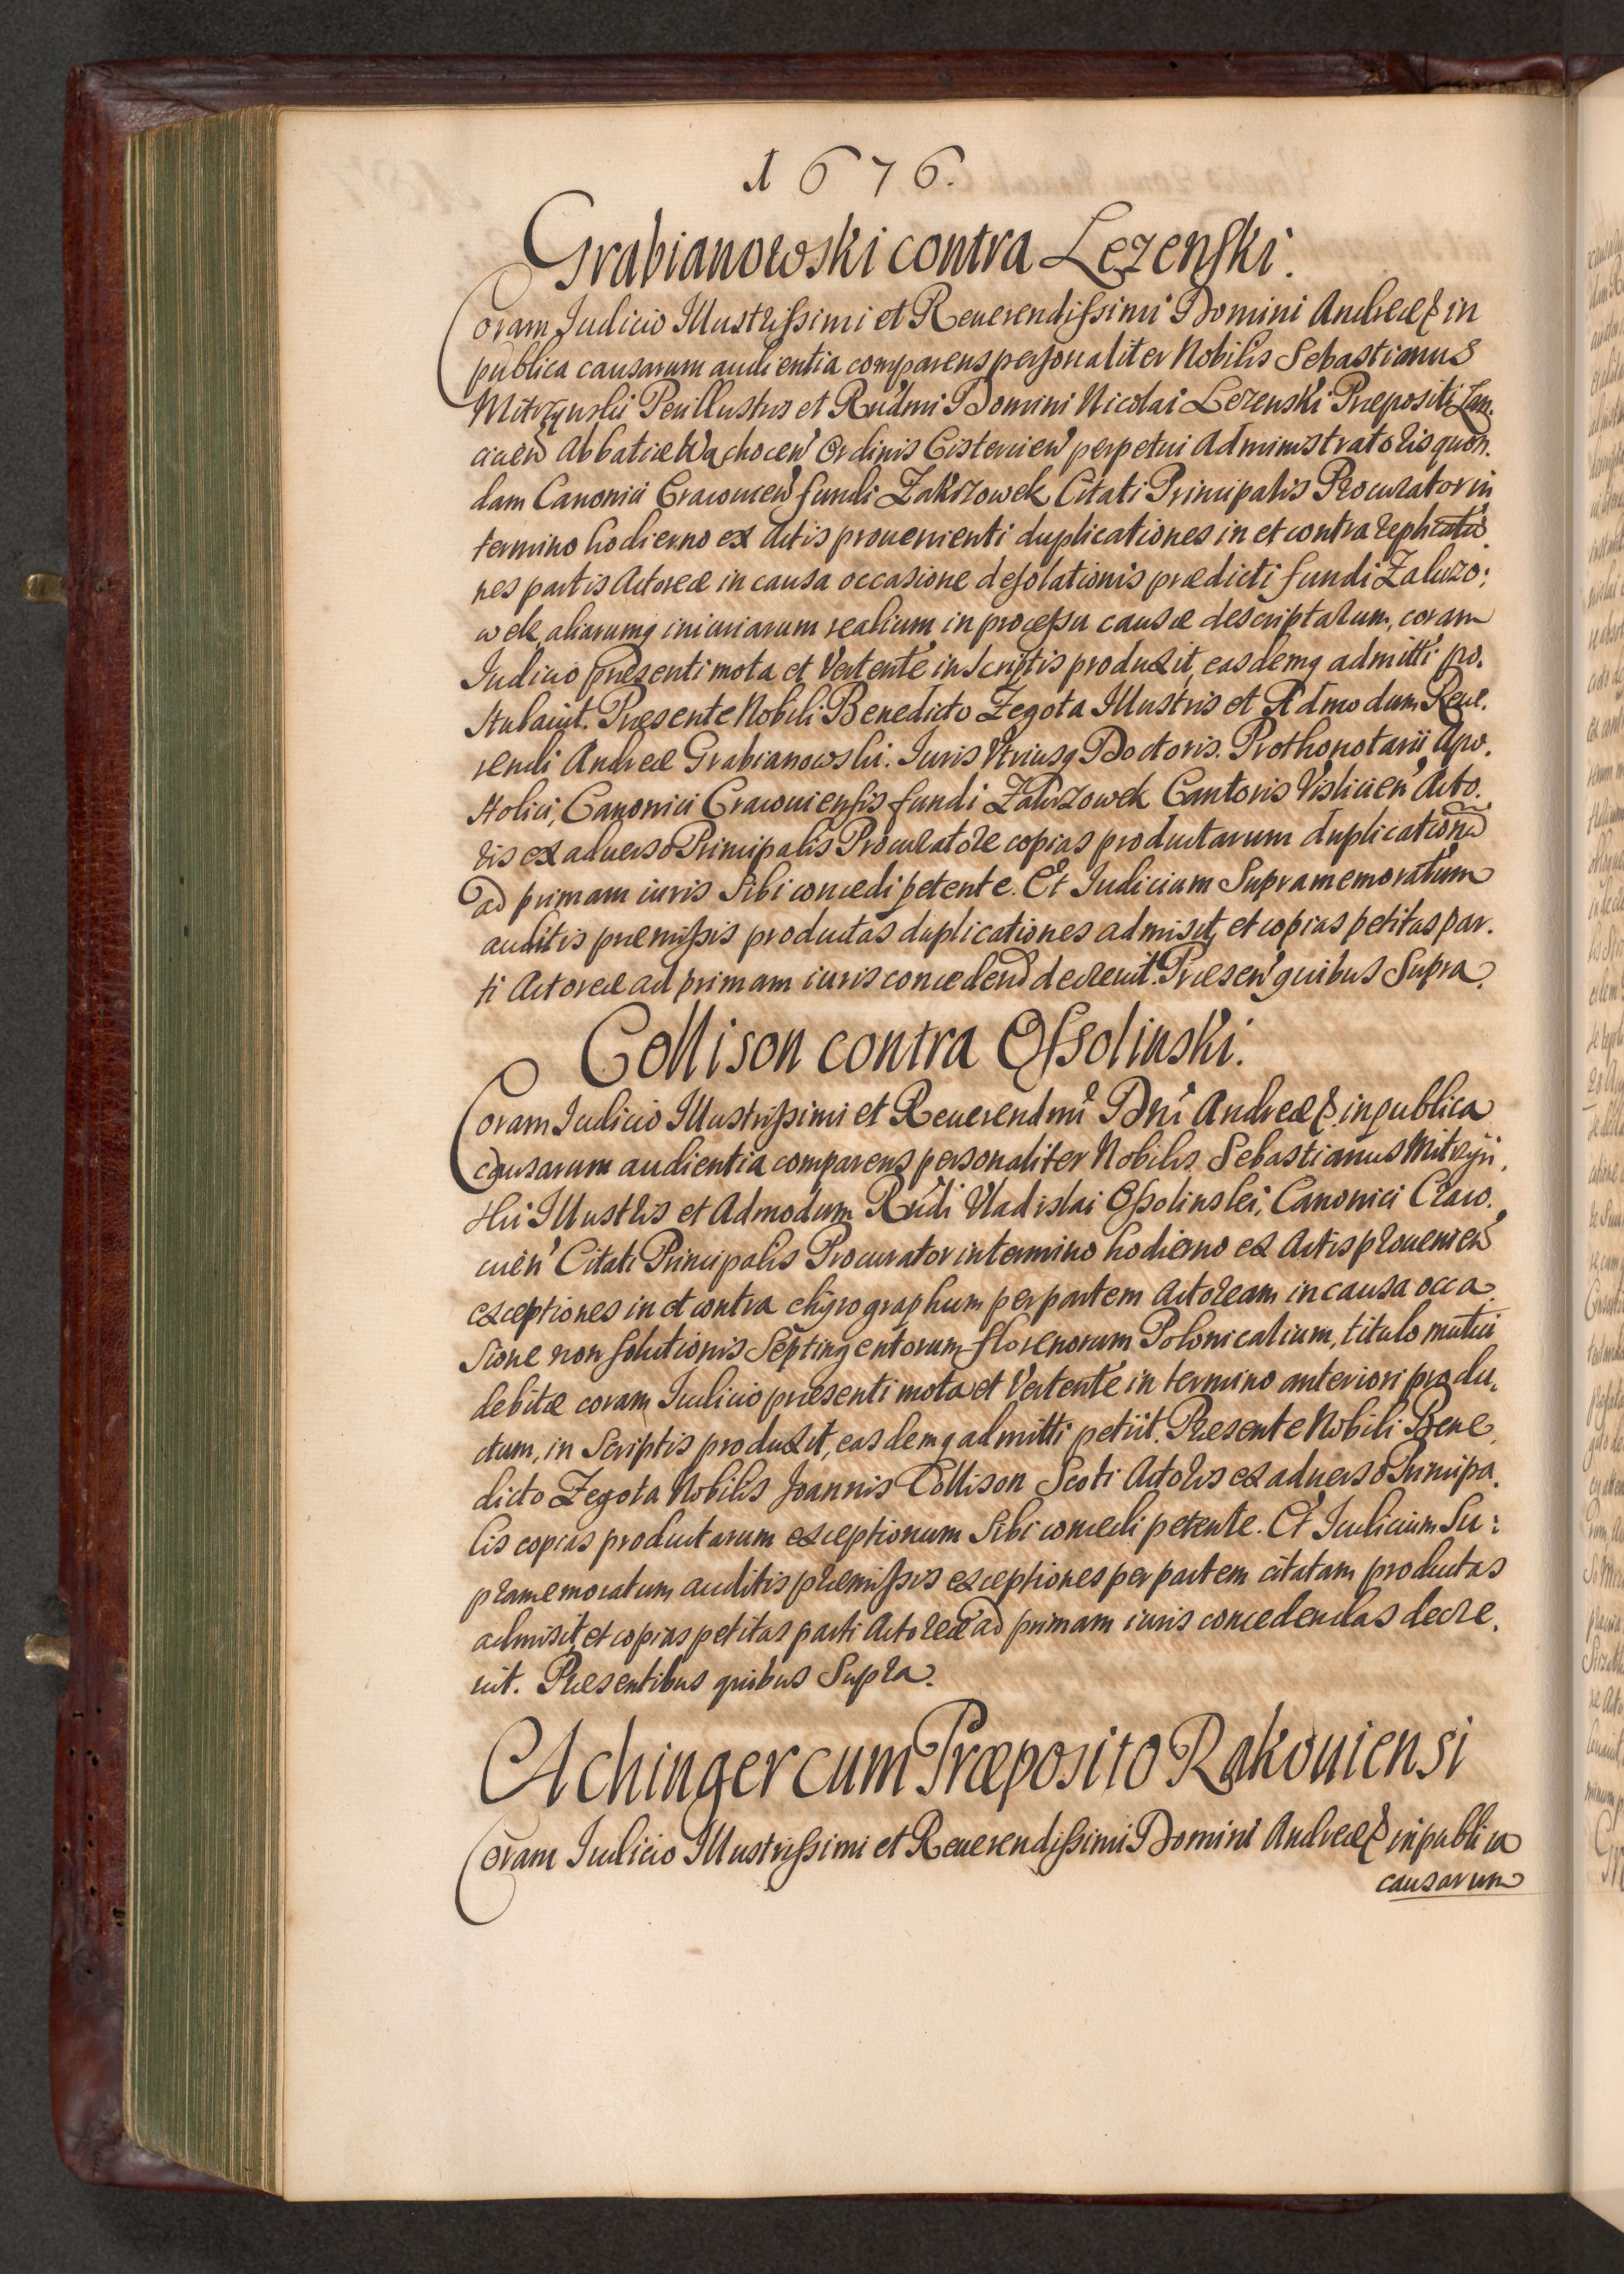 1676.
Grabianowski contra Lezenski.
Coram Iudicio Illustrissimi et Reuerendissimi Domini Andreæ & in
publica causarum audientia comparens personaliter Nobilis Sebastianus
Mitrzynski Perillustris et Rndmi Domini Nicolai Lezenski Præpositi Lan.
cicien Abbatiæ Wachocen Ordinis Cistercien perpetui Administratoris quon.
dam Canonici Cracouien fundi Zakrzowek Citati Principalis Procurator in
termino hodierno ex Actis prouenienti duplicationes in et contra replicatio.
nes partis Actoreæ in causa occasione desolationis prædicti fundi Zakrzo:
wek, aliarumq iniuriarum realium in processu causæ descriptarum, coram
Iudicio præsenti mota et Vertente in Scriptis produxit, easdemq admitti po.
stulauit. Præsente Nobili Benedicto Zegota Illustris et Admodum Reue.
rendi Andreæ Grabianowski. Iuris Vtriusq Doctoris. Prothonotarii Apo.
stolici, Canonici Cracouiensis fundi Zakrzowek Cantoris Vislicien Acto.
ris ex aduerso Principalis Procuratore copias productarum duplicationu
ad primam iuris Sibi concedi petente. Et Iudicium Supramemoratum
auditis præmissis productas duplicationes admisit, et copias petitas par.
ti Actoreæ ad primam iuris concedend decreuit. Præsen quibus Supra.
Collison contra Ossolinski.
Coram Iudicio Illustrissimi et Reuerendmi Dni Andreæ & in publica
causarum audientia comparens personaliter Nobilis Sebastianus Mitrzyn.
ski Illustris et Admodum Rndi Vladislai Ossolinski, Canonici Craco.
uien Citati Principalis Procurator in termino hodierno ex Actis prouenien
exceptiones in et contra chyrographum per partem Actoream in causa occa.
sione non solutionis Septingentorum florenorum Polonicalium, titulo mutui
debitæ coram Iudicio præsenti mota et Vertente in termino anteriori produ.
ctum, in Scriptis produxit, easdemq admitti petiit. Præsente Nobili Bene.
dicto Zegota Nobilis Joannis Collison Scoti Actoris ex aduerso Principa.
lis copias productarum exceptionum Sibi concedi petente. Et Iudicium Su:
pramemoratum auditis præmissis exceptiones per partem citatam productas
admisit, et copias petitas parti Actoreæ ad primam iuris concedendas decre.
uit. Præsentibus quibus Supra.
Achinger cum Præposito Rakouiensi
Coram Iudicio Illustrissimi et Reuerendissimi Domini Andreæ & in publica
causarum